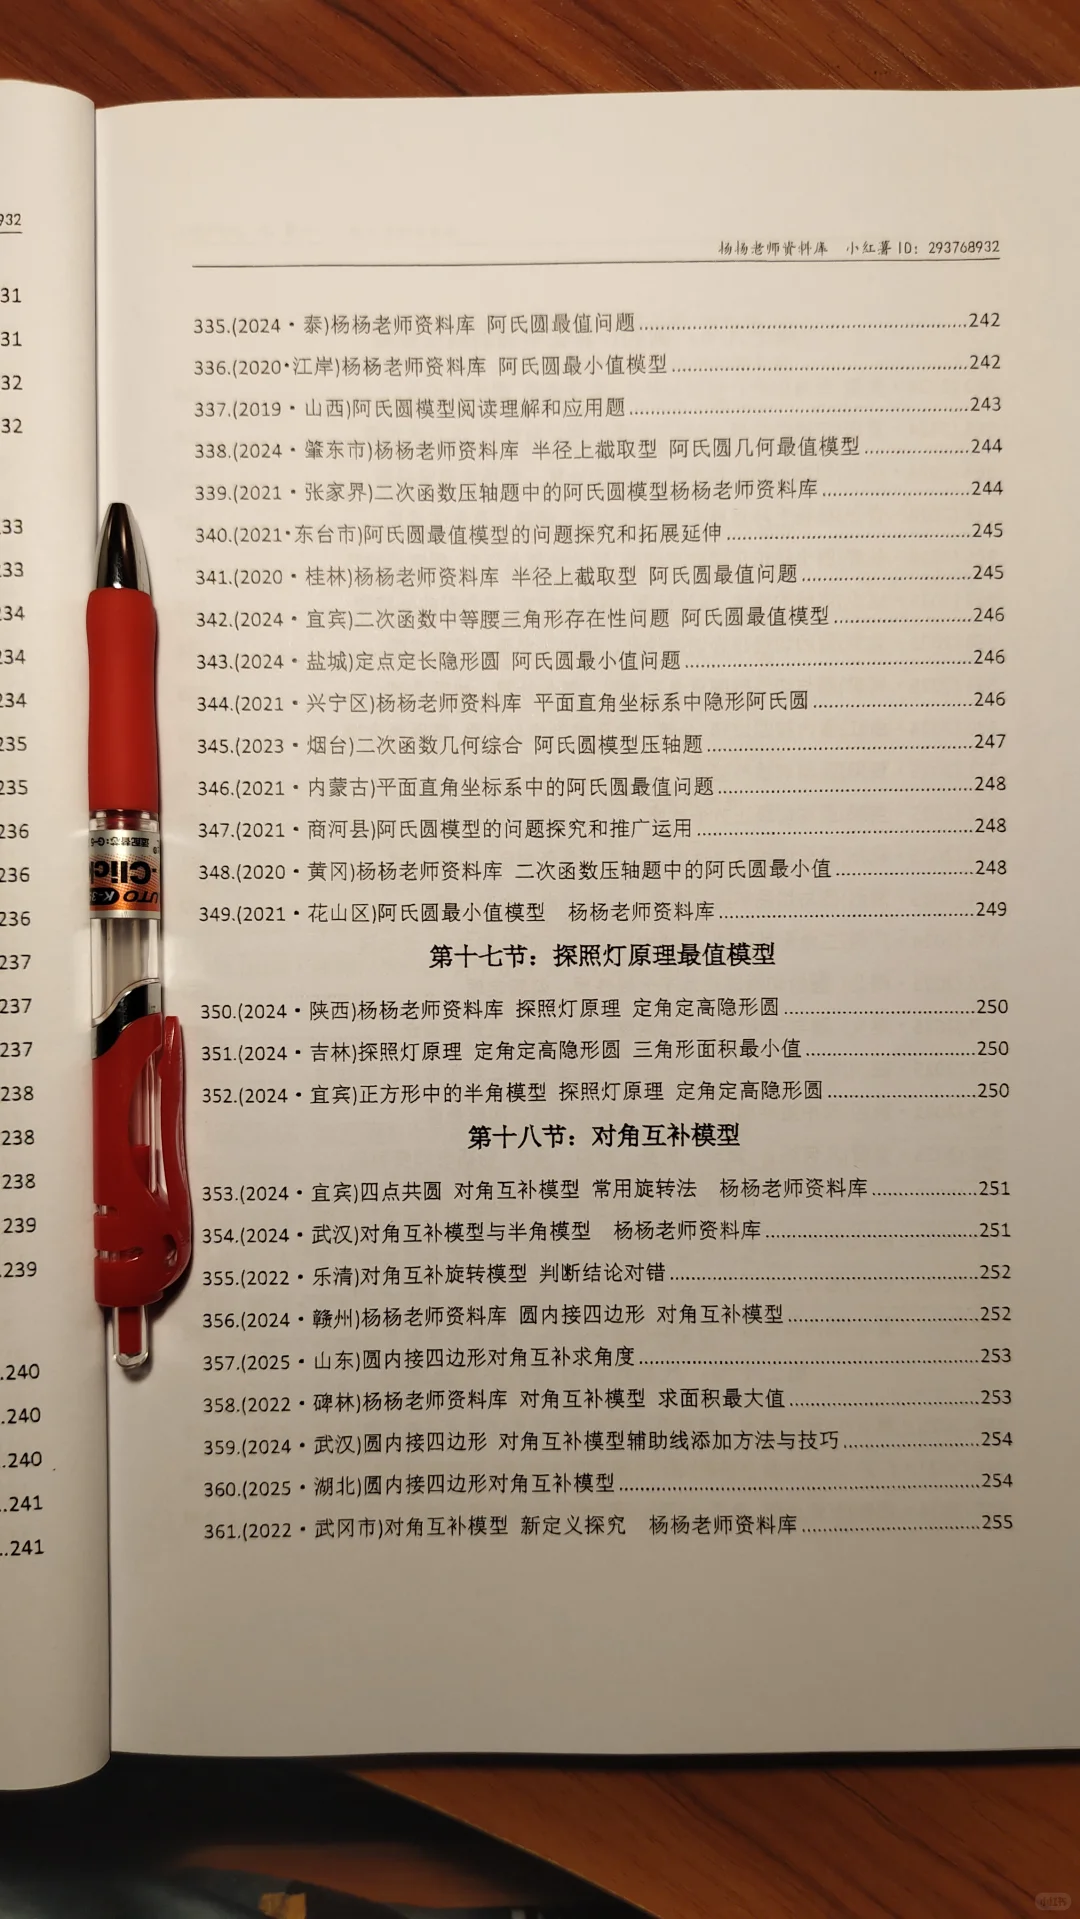 932
31
31
32
32
33
33
234
234
234
235
235
236
236
236
237
237
237
238
238
238
239
.239
.240
.240
.240
.241
.241
杨杨老师资料库 小红薯ID: 293768932
335.(2024·泰)杨杨老师资料库 阿氏圆最值问题........242
336.(2020·江岸)杨杨老师资料库 阿氏圆最小值模型........242
337.(2019·山西)阿氏圆模型阅读理解和应用题........243
338.(2024·肇东市)杨杨老师资料库 半径上截取型 阿氏圆几何最值模型........244
339.(2021·张家界)二次函数压轴题中的阿氏圆模型杨杨老师资料库........244
340.(2021·东台市)阿氏圆最值模型的问题探究和拓展延伸........245
341.(2020·桂林)杨杨老师资料库 半径上截取型 阿氏圆最值问题........245
342.(2024·宜宾)二次函数中等腰三角形存在性问题 阿氏圆最值模型........246
343.(2024·盐城)定点定长隐形圆 阿氏圆最小值问题........246
344.(2021·兴宁区)杨杨老师资料库 平面直角坐标系中隐形阿氏圆........246
345.(2023·烟台)二次函数几何综合 阿氏圆模型压轴题........247
346.(2021·内蒙古)平面直角坐标系中的阿氏圆最值问题........248
347.(2021·商河县)阿氏圆模型的问题探究和推广运用........248
348.(2020·黄冈)杨杨老师资料库 二次函数压轴题中的阿氏圆最小值........248
349.(2021·花山区)阿氏圆最小值模型 杨杨老师资料库........249
第十七节：探照灯原理最值模型
350.(2024·陕西)杨杨老师资料库 探照灯原理 定角定高隐形圆........250
351.(2024·吉林)探照灯原理 定角定高隐形圆 三角形面积最小值........250
352.(2024·宜宾)正方形中的半角模型 探照灯原理 定角定高隐形圆........250
第十八节：对角互补模型
353.(2024·宜宾)四点共圆 对角互补模型 常用旋转法 杨杨老师资料库........251
354.(2024·武汉)对角互补模型与半角模型 杨杨老师资料库........251
355.(2022·乐清)对角互补旋转模型 判断结论对错........252
356.(2024·赣州)杨杨老师资料库 圆内接四边形 对角互补模型........252
357.(2025·山东)圆内接四边形对角互补求角度........253
358.(2022·碑林)杨杨老师资料库 对角互补模型 求面积最大值........253
359.(2024·武汉)圆内接四边形 对角互补模型辅助线添加方法与技巧........254
360.(2025·湖北)圆内接四边形对角互补模型........254
361.(2022·武冈市)对角互补模型 新定义探究 杨杨老师资料库........255
-Click
UTO K-3
小红书